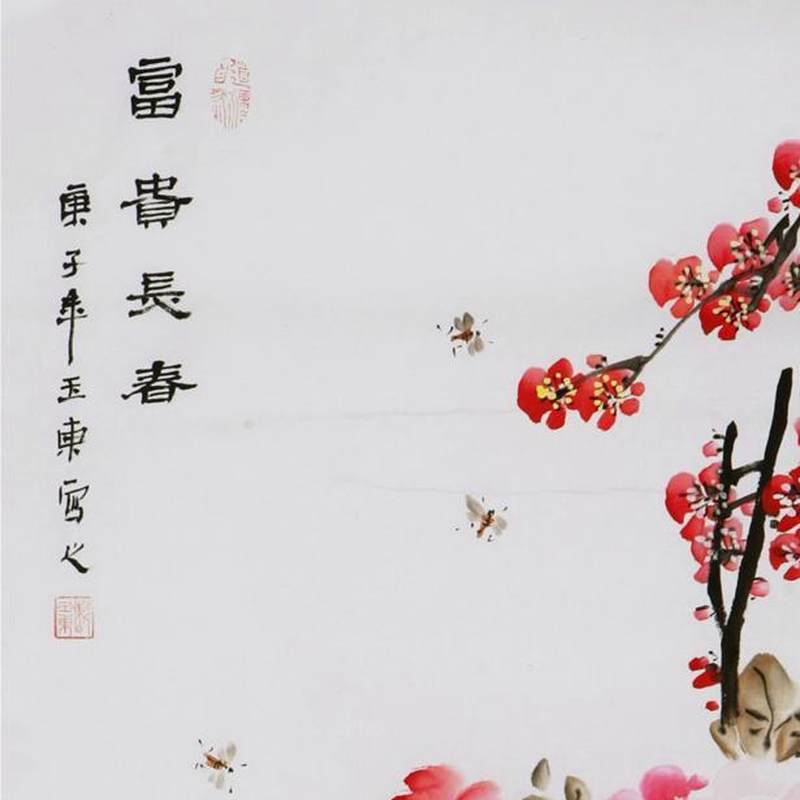 富貴長春
庚子年玉東寫之